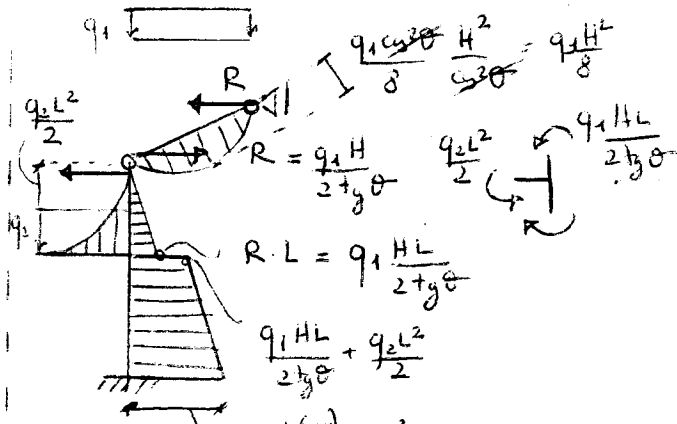 q₁
q₁ cos²θ / 8 H² / cos²θ = q₁H² / 8
R
q₂L² / 2
R = q₁H / 2tgθ
q₂L² / 2
q₁HL / 2tgθ
q₂
R·L = q₁ HL / 2tgθ
q₁HL / 2tgθ + q₂L² / 2